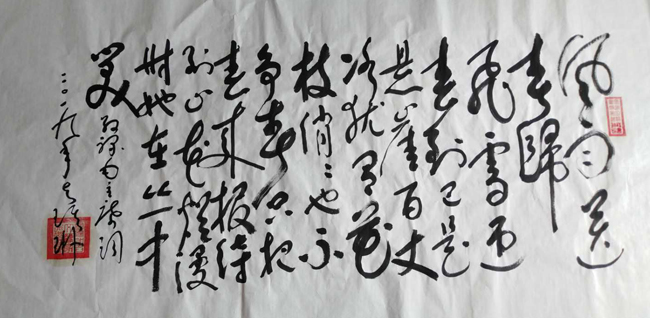 风雨送
春歸
飛雪迎
春到已是
悬崖百丈
冰犹有花
枝俏俏也不
争春只把
春來報待
到山花爛漫
时她在丛中
笑
毛主席词
二〇一九年